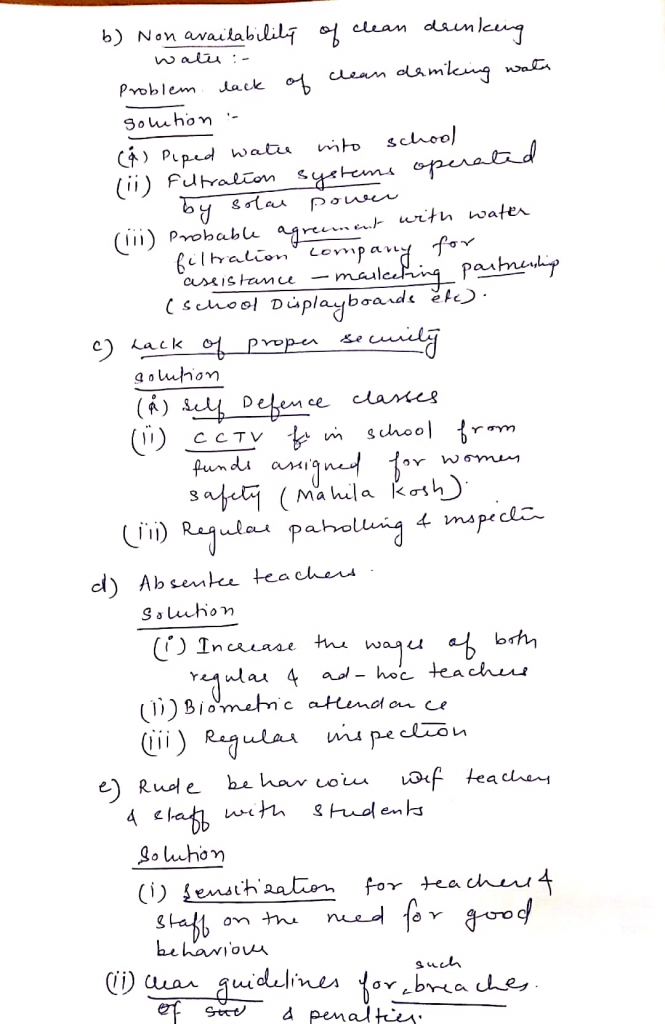 b) Non availability of clean drinking
water :-
Problem lack of clean drinking water
Solution :-
(i) Piped water into school
(ii) Filtration systems operated
by solar power
(iii) Probable agreement with water
filtration company for
assistance – marketing partnership
(School Displayboards etc).
c) Lack of proper security
Solution
(i) Self Defence classes
(ii) CCTV in school from
funds assigned for women
safety (Mahila Kosh)
(iii) Regular patrolling & inspection
d) Absentee teachers.
Solution
(i) Increase the wages of both
regular & ad-hoc teachers
(ii) Biometric attendance
(iii) Regular inspection
e) Rude behaviour of teachers
& staff with students
Solution
(i) Sensitization for teachers &
staff on the need for good
behaviour
such
(ii) Clear guidelines for breaches.
of & penalties.